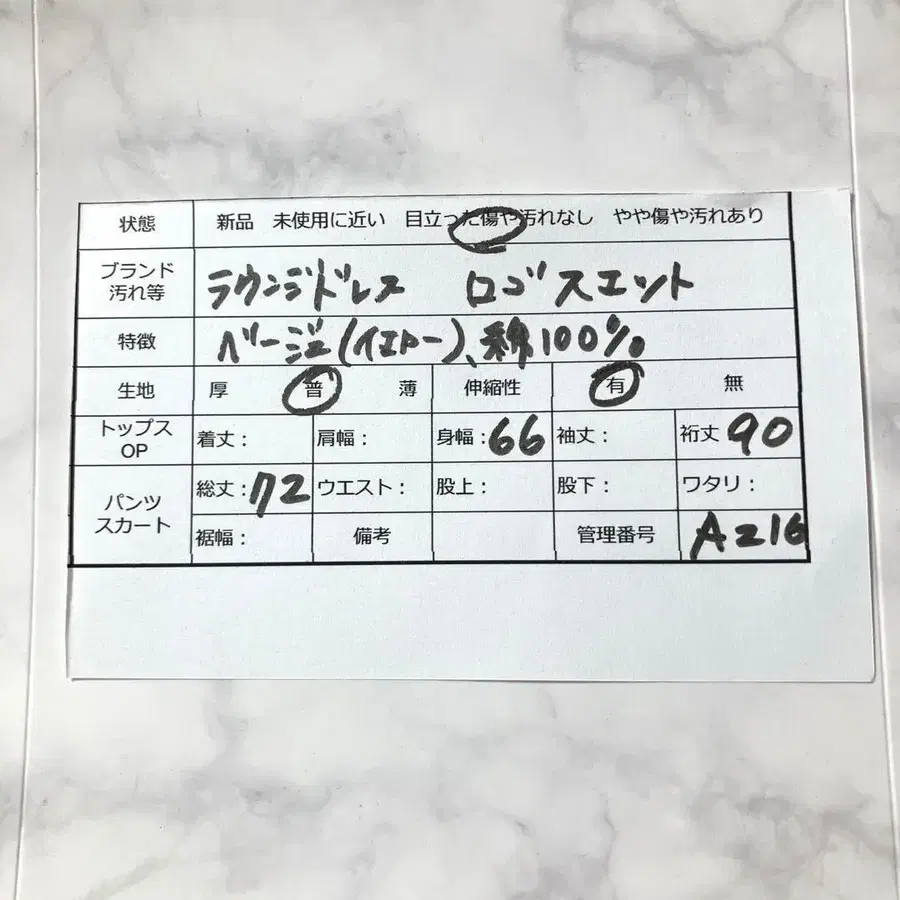 状態 新品 未使用に近い 目立った傷や汚れなし やや傷や汚れあり
ブランド
汚れ等 ラウンデドレス ロゴスエット
特徴 ベージュ(イエロー)、綿100%
生地 厚 普 薄 伸縮性 有 無
トップス
OP 着丈: 肩幅: 身幅:66 袖丈: 裄丈 90
パンツ
スカート 総丈:72 ウエスト: 股上: 股下: ワタリ:
裾幅: 備考 管理番号 A216